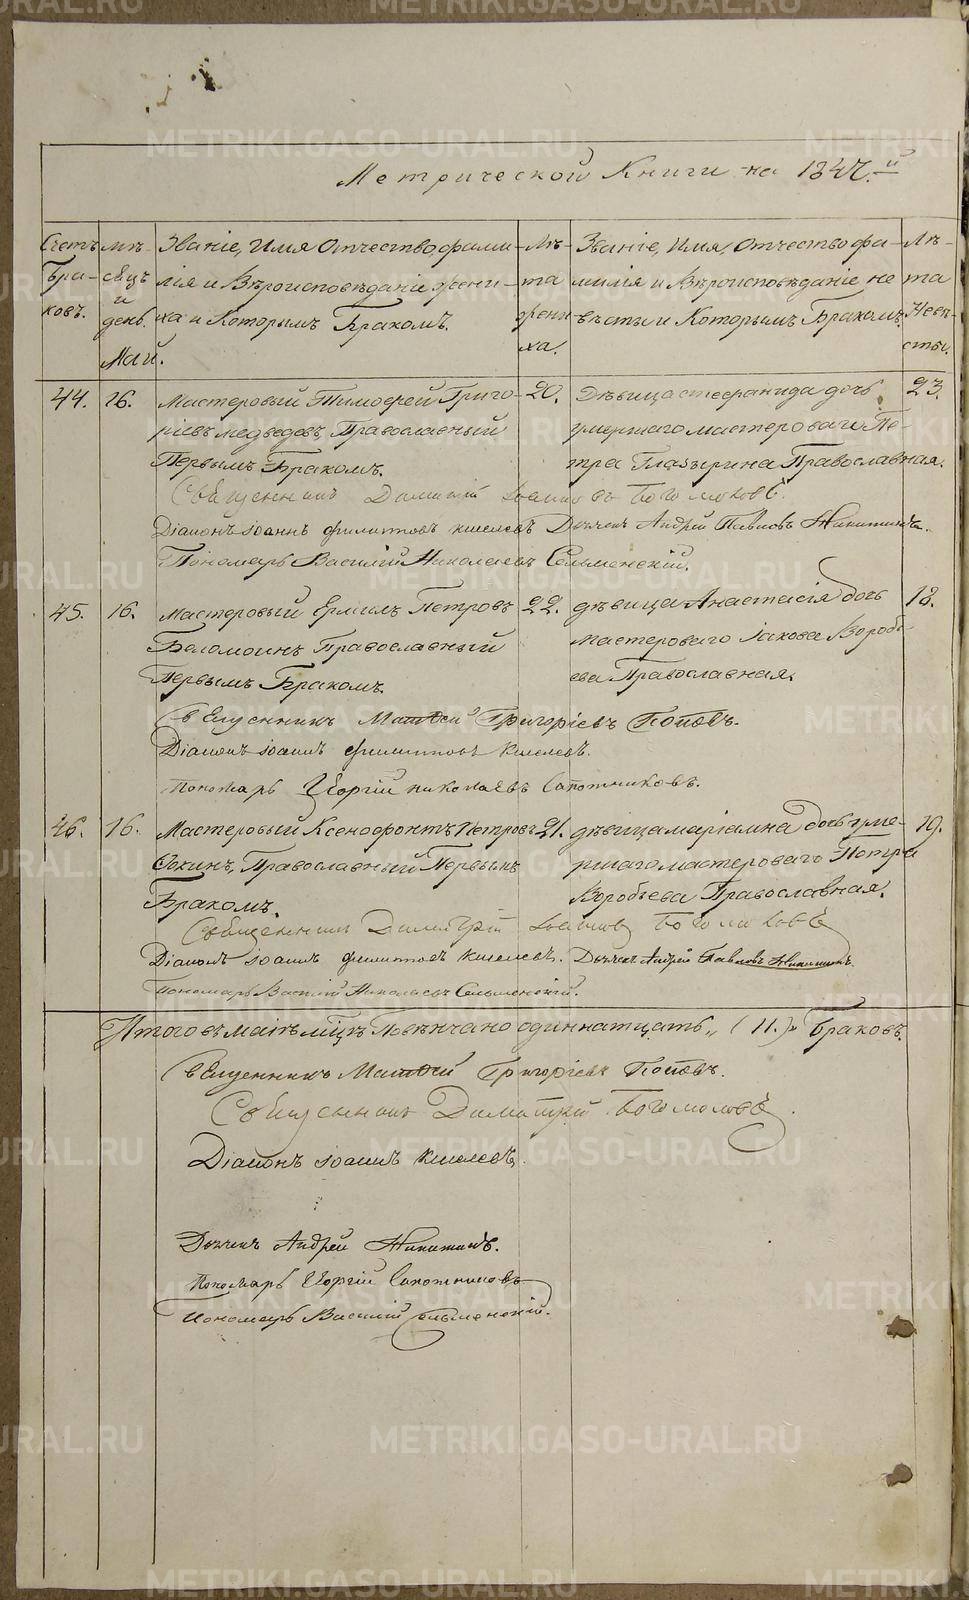 Метрической Книги на 1847.й
Счетъ Браковъ.
Мѣсяцъ и день.
Званіе, Имя Отчество, фамилія и Вѣроисповѣданіе жениха и Которымъ Бракомъ.
Лѣта жениха.
Званіе, Имя, Отчество фамилія и Вѣроисповѣданіе невѣсты и Которымъ Бракомъ.
Лѣта Невѣсты.
Май.
44. 16. Мастеровый Тимофей Григо- 20. Дѣвица Стефанида дочь 23.
ріевъ Медведевъ, Православный умершаго мастероваго Пе-
Первымъ Бракомъ. тра Глазырина Православная.
Священникъ Димитрій Іоанновъ Богомоловъ.
Діаконъ Іоаннъ Филипповъ Киселевъ Дьячекъ Андрей Павловъ Никитинъ.
Пономарь Василій Николаевъ Сельменскій.
45. 16. Мастеровый Ермилъ Петровъ 22. дѣвица Анастасія дочь 18.
Беломоинъ Православный мастероваго Іакова Воробь-
Первымъ Бракомъ. ева Православная.
Священникъ Матѳей Григоріевъ Поповъ.
Діаконъ Іоаннъ Филипповъ Киселевъ.
Пономарь Георгій Николаевъ Сапожниковъ.
46. 16. Мастеровый Ксенофонтъ Петровъ 21. дѣвица Маріамна дочь уме- 19.
Православный Первымъ ршаго мастероваго Петра
Бракомъ. Воробьева Православная.
Священникъ Димитрій Іоанновъ Богомоловъ
Діаконъ Іоаннъ Филипповъ Киселевъ. Дьячекъ Андрей Павловъ Никитинъ.
Пономарь Василій Николаевъ Сельменскій.
Итого въ маіѣ мцѣ Повѣнчано одиннатцать „ (11.)„ Браковъ.
Священникъ Матѳей Григоріевъ Поповъ.
Священникъ Димитрій Богомоловъ.
Діаконъ Іоаннъ Киселевъ.
Дьячекъ Андрей Никитинъ.
Пономарь Георгій Сапожниковъ
Пономарь Василій Сельменскій.
METRIKI.GASO-URAL.RU